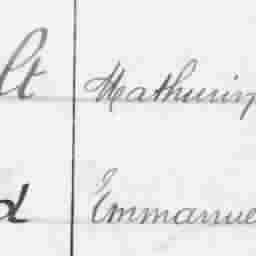 lt Mathurin
d Emmanue